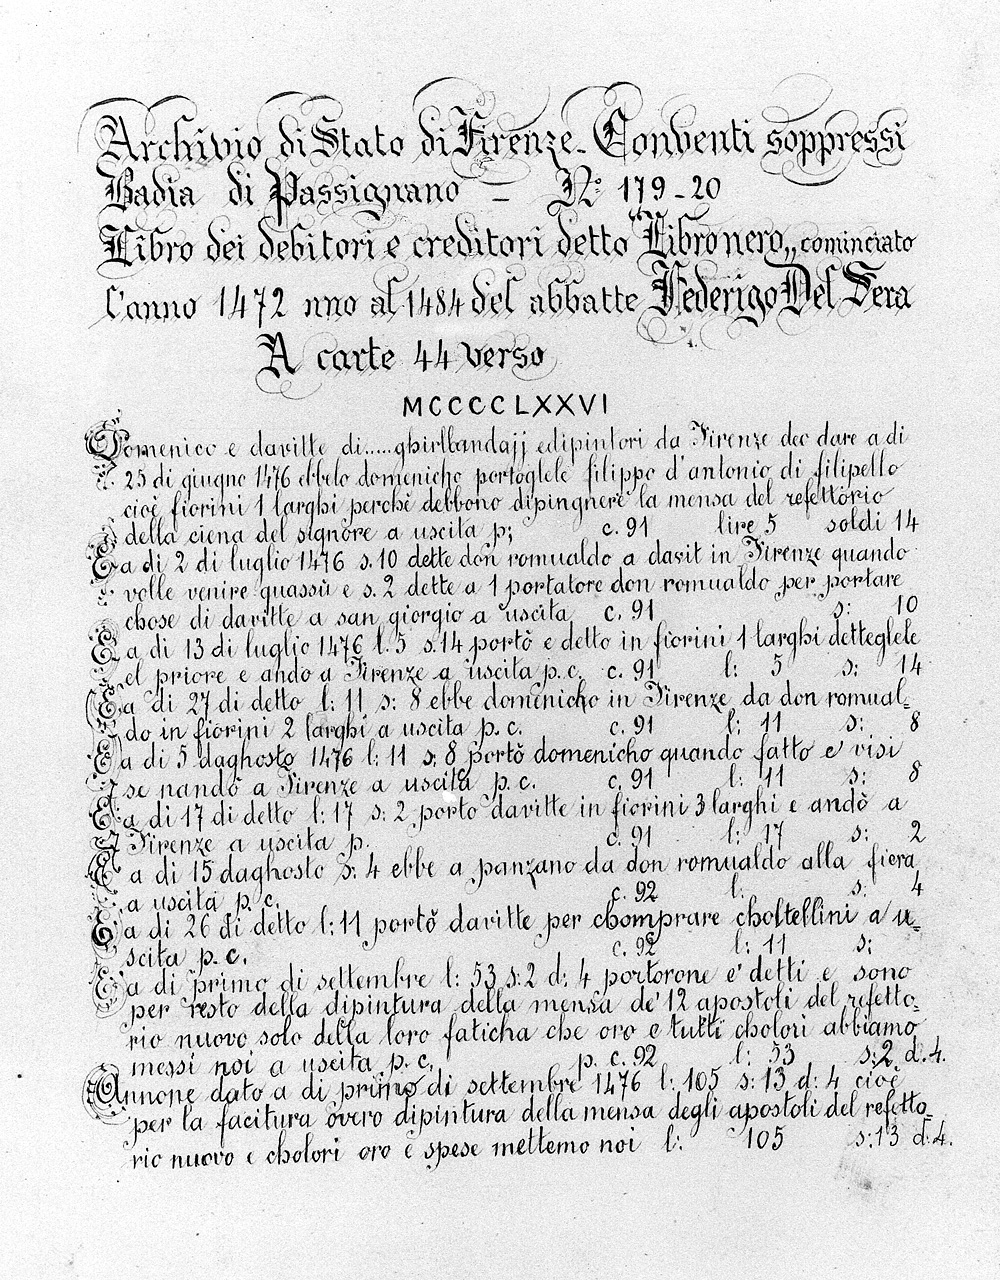 Archivio di Stato di Firenze - Conventi soppressi
Badia di Passignano - Nº 179-20
Libro dei debitori e creditori detto "Libro nero„ cominciato
l'anno 1472 nno al 1484 del abbatte Federigo Del Sera
A carte 44 verso
MCCCCLXXVI
Domenico e davitte di.....ghirlbandajj edipintori da Firenze dec dare a di
25 di giugno 1476 ebbelo domenicho portoglele filippo d'antonio di filipello
cioè fiorini 1 larghi perchè debbono dipingnere la mensa del refettorio
della ciena del signore a uscita p; c. 91 lire 5 soldi 14
E a di 2 di luglio 1476 s. 10 dette don romualdo a davit in Firenze quando
volle venire quassù e s. 2 dette a 1 portatore don romualdo per portare
chose di davitte a san giorgio a uscita c. 91 s: 10
E a di 13 di luglio 1476 l. 5 s. 14 portò e detto in fiorini 1 larghi detteglele
el priore e ando a Firenze a uscita p. c. c. 91 l: 5 s: 14
E a di 27 di detto l: 11 s: 8 ebbe domenicho in Firenze da don romual-
do in fiorini 2 larghi a uscita p. c. c. 91 l: 11 s: 8
E a di 5 daghosto 1476 l: 11 s: 8 portò domenicho quando fatto e visi
se nandò a Firenze a uscita p. c. c. 91 l: 11 s: 8
E a di 17 di detto l: 17 s: 2 porto davitte in fiorini 3 larghi e andò a
Firenze a uscita p. c. 91 l: 17 s: 2
E a di 15 daghosto s: 4 ebbe a panzano da don romualdo alla fiera
a uscita p. c. c. 92 l: s: 4
E a di 26 di detto l: 11 portò davitte per chomprare choltellini a u-
scita p. c. c. 92 l: 11 s:
E a di primo di settembre l: 53 s: 2 d: 4 portorone e' detti e sono
per resto della dipintura della mensa de' 12 apostoli del refetto-
rio nuovo solo della loro faticha che oro e tutti cholori abbiamo
messi noi a uscita p. c. p. c. 92 l: 53 s: 2 d. 4.
Annone dato a di primo di settembre 1476 l: 105 s: 13 d: 4 cioè
per la facitura overo dipintura della mensa degli apostoli del refetto-
rio nuovo e cholori oro e spese mettemo noi l: 105 s: 13 d: 4.